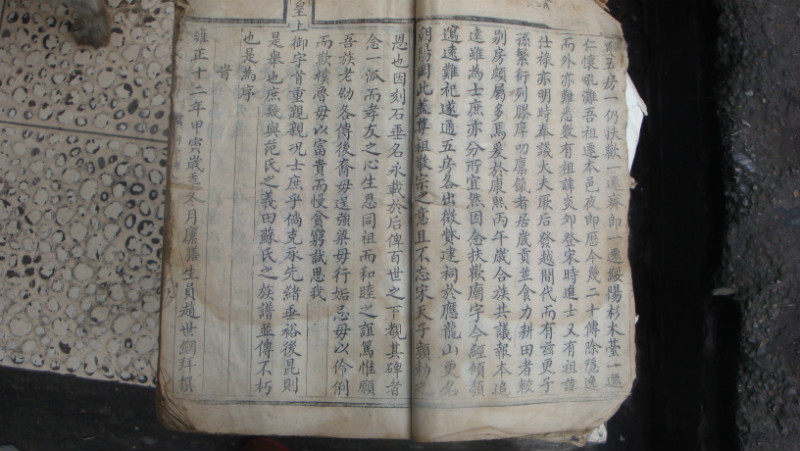 五房一仍扶歡一遷麻邨一遷綏陽杉木𦰡一遷
仁懷九灘吾祖遷本邑夜郎歷今幾二十傳除隱逸
而外亦難悉數有祖諱炎夘登宋時進士又有祖諱
仕祿亦明時奉議大夫厥后發越閱代而有茲更子
孫繁衍列膠庠叨廪餼者居歲貢並食力耕田者較
别房頗屬多焉爰於康熙丙午歲合族共議報本追
遠雖為士庶亦分所宜然因念扶歡廟宇今經傾頹
窵遠難祀遂通五房各出微貲建祠於應龍山更名
朝陽閣此義尊祖敬宗之意且不忘宋天子頒勅之
恩也因刻石垂名永載於后俾百世之下覩其碑者
念一派而孝友之心生思同祖而和睦之誼篤惟願
吾族老幼各傳後裔毋逞強梁毋行妬忌毋以伶俐
而欺樸魯毋以富貴而慢貧窮試思我
皇上御字首重觀觀况士庶乎倘克承先緒垂裕後昆則
是舉也庶幾與范氏之義田蘇氏之族譜並傳不朽
也是為序
旹
雍正十二年甲寅歲冬月廪膳生員趙世綱拜撰